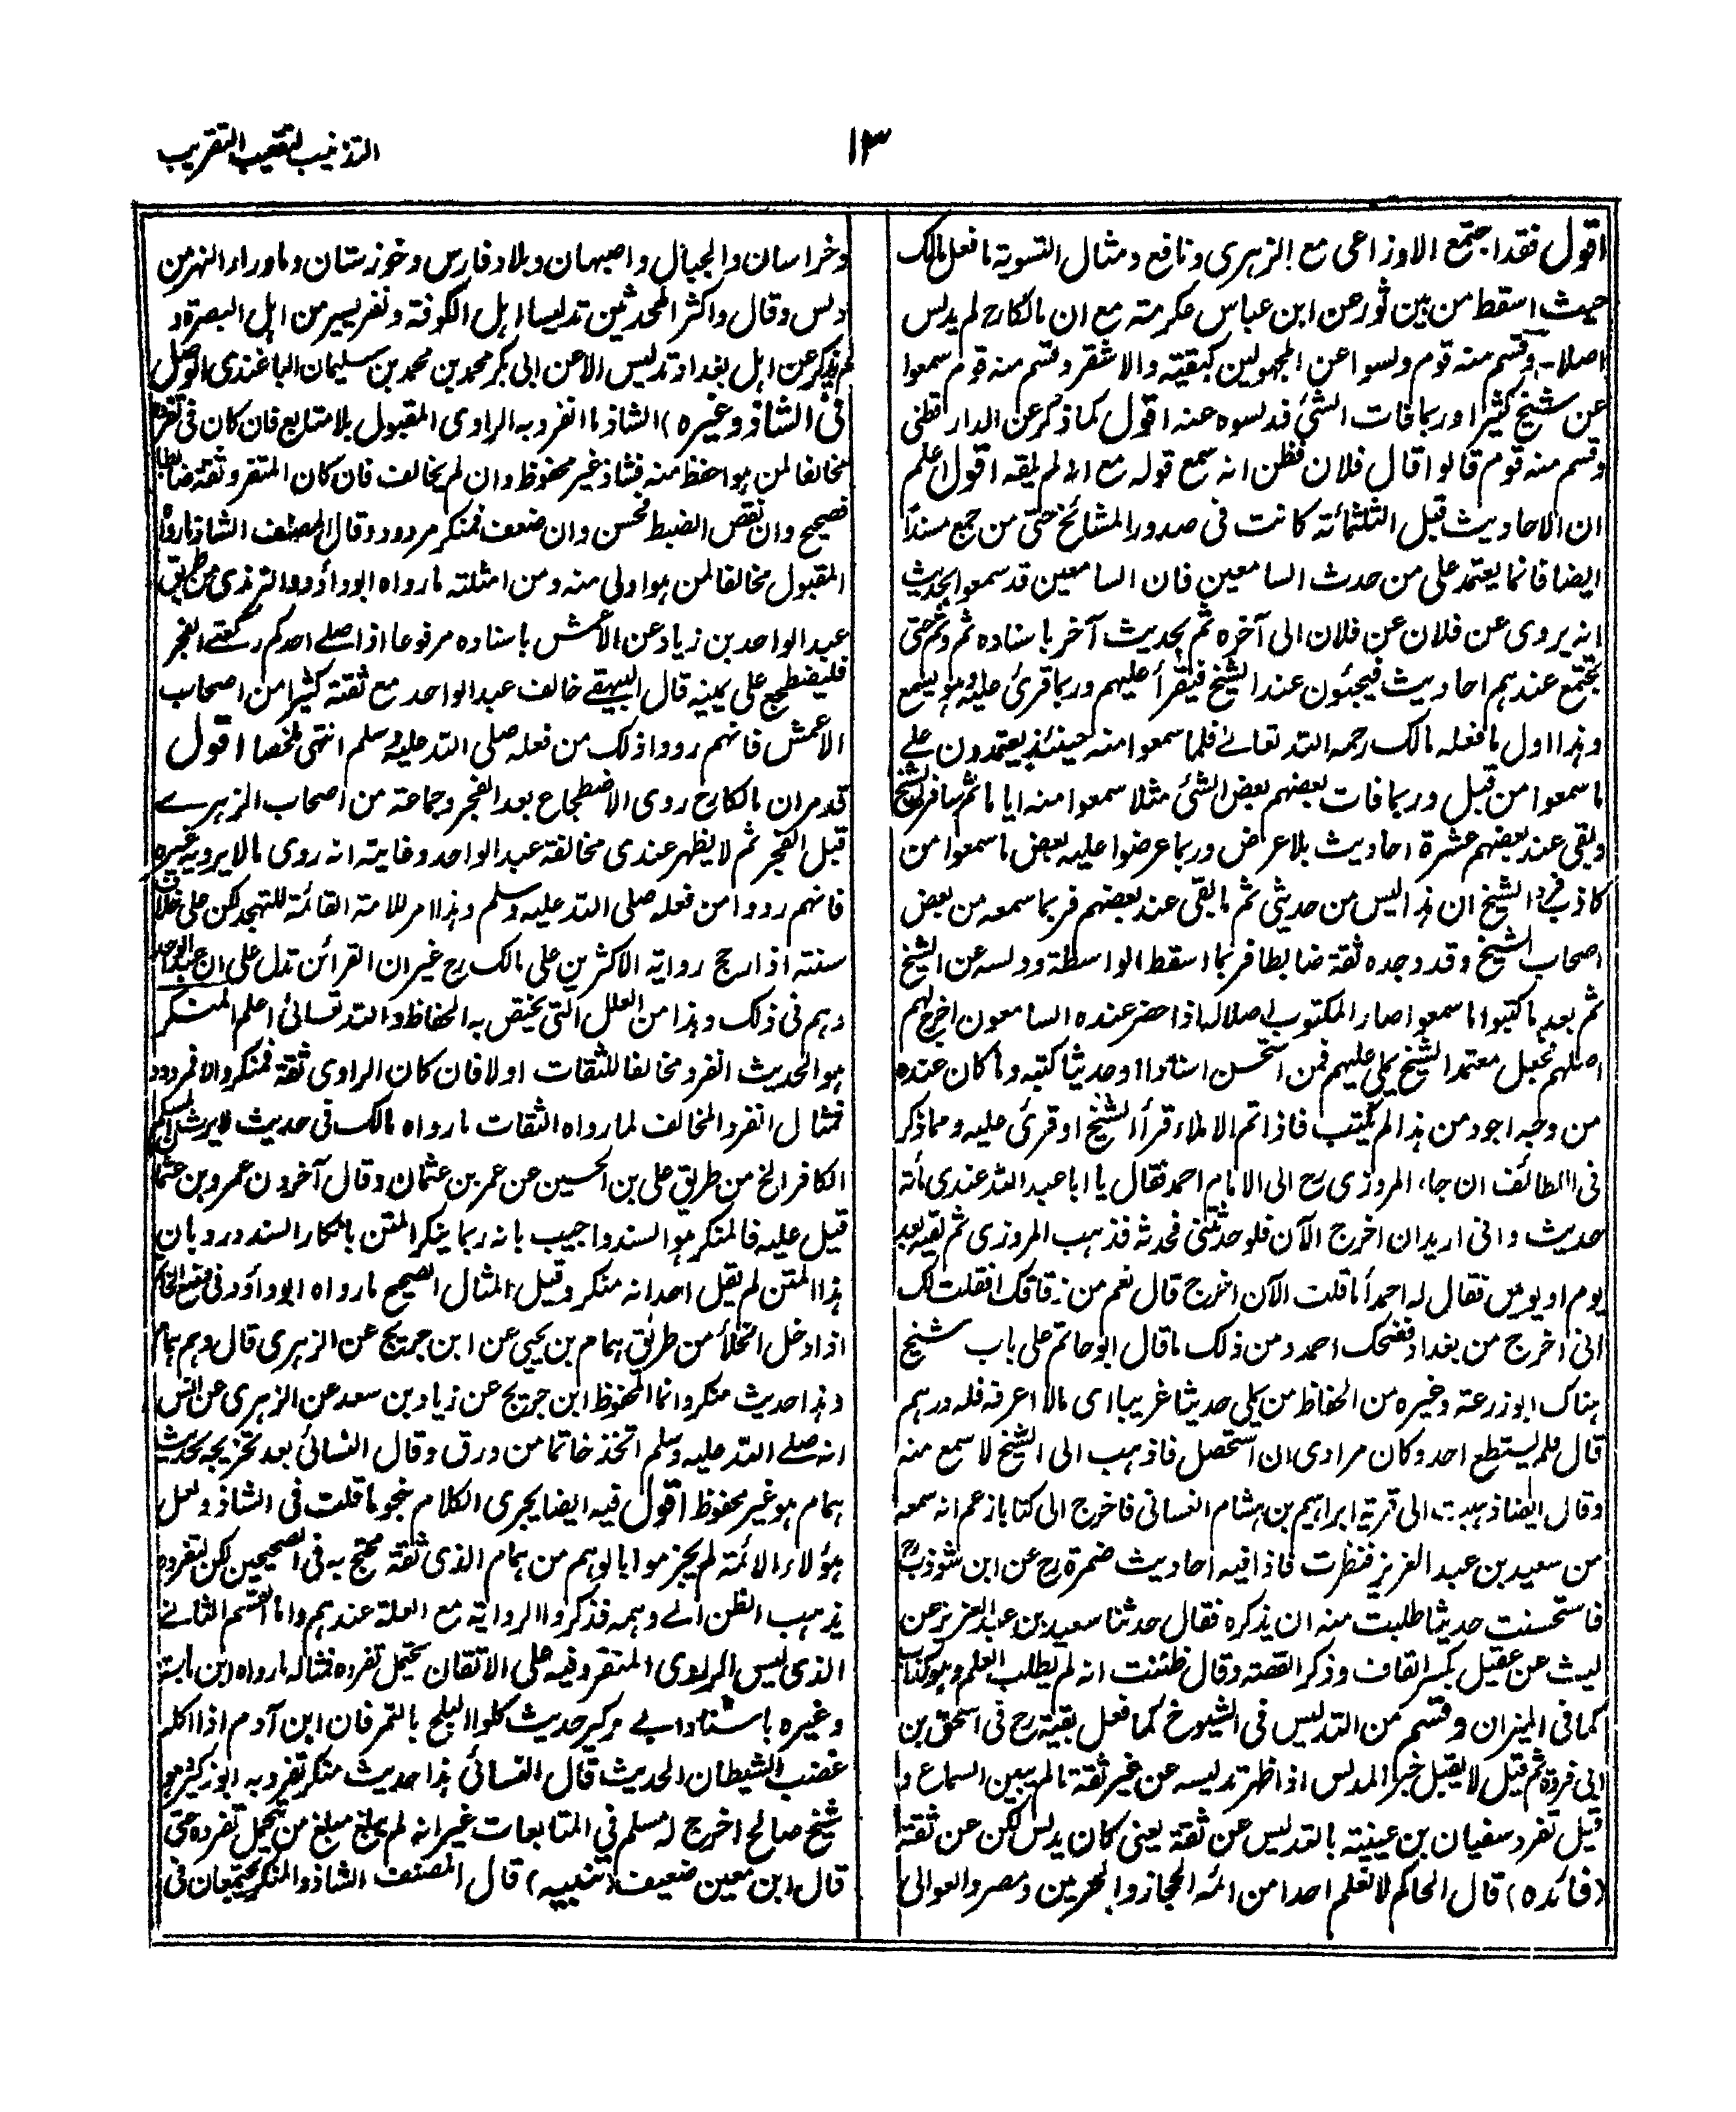 التذنيب لتعقيب التقريب
١٣
اقول فقد اجتمع الاوزاعى مع الزهرى ونافع ومثال التسوية ما فعل مالك
حيث اسقط من بين ثور عن ابن عباس عكرمته مع ان مالكا رح لم يدلس
اصلا وقسم منه قوم دلسوا عن المجهولين كبقية والاشقر وقسم منه قوم سمعوا
عن شيخ كثيرا وربما فات الشئ فدلسوه عنه اقول كما ذكر عن الدارقطنى
وقسم منه قوم قالوا قال فلان فظن انه سمع قوله مع انه لم يلقه اقول اعلم
ان الاحاديث قبل الثلثمائة كانت فى صدور المشائخ حتى من جمع مسندا
ايضا فانما يعتمد على من حدث السامعين فان السامعين قد سمعوا الحديث
انه يروى عن فلان عن فلان الى آخره ثم بحديث آخر باسناده ثم وثم حتى
يجتمع عندهم احاديث فيجيئون عند الشيخ فيقرأ عليهم وربما قرئ عليه وهو يسمع
وهذا اول ما فعله مالك رحمه الله تعالى فلما سمعوا منه حينئذ يعتمدون على
ما سمعوا من قبل وربما فات بعضهم بعض الشئ مثلا سمعوا منه اياما ثم سافر الشيخ
وبقى عند بعضهم عشرة احاديث بلا عرض وربما عرضوا عليه بعض ما سمعوا من
كاذب فرد الشيخ ان هذا ليس من حديثى ثم ما بقى عند بعضهم فربما سمعه من بعض
اصحاب الشيخ وقد وجده ثقة ضابطا فربما اسقط الواسطة ودلسه عن الشيخ
ثم بعد ما كتبوا ما سمعوا صار المكتوب اصلا لهم اذا حضر عنده السامعون اخرج لهم
اصلهم فجعل معتمد الشيخ يملى عليهم فمن استحسن اسنادا او حديثا كتبه وما كان عنده
من وجه اجود من هذا لم يكتب فاذا تم الاملاء قرأ الشيخ او قرئ عليه ومما ذكر
فى اللطائف ان جاء المروزى رح الى الامام احمد فقال يا ابا عبد الله عندى مأته
حديث وانى اريد ان اخرج الآن فلو حدثتنى فحدثه فذهب المروزى ثم لقيه بعد
يوم او يومين فقال له احمد أما قلت الآن اخرج قال نعم من زقاقك افقلت لك
انى اخرج من بغداد فضحك احمد ومن ذلك ما قال ابو حاتم على باب شيخ
هناك ابو زرعة وغيره من الحفاظ من يملى حديثا غريبا اى مالا اعرفه فله درهم
قال فلم يستطع احد وكان مرادى ان استحصل فاذهب الى الشيخ لاسمع منه
وقال ايضا ذهبت الى قرية ابراهيم بن هشام الغسانى فاخرج الى كتابا زعم انه سمعه
من سعيد بن عبد العزيز فنظرت فاذا فيه احاديث ضمرة رح عن ابن شوذب
فاستحسنت حديثا طلبت منه ان يذكره فقال حدثنا سعيد بن عبد العزيز عن
ليث عن عقيل بكسر القاف وذكر القصة وقال ظننت انه لم يطلب العلم وهو كذاب
كما فى الميزان وقسم من التدليس فى الشيوخ كما فعل بقية رح فى اسحق بن
ابى فروة ثم قيل لا يقبل خبر المدلس اذا ظهر تدليسه عن غير ثقة ما لم يبين السماع و
قيل تفرد سفيان بن عيينة بالتدليس عن ثقة يعنى كان يدلس لكن عن ثقة
(فائده) قال الحاكم لا نعلم احدا من ائمه الحجاز والحرمين ومصر والعوالى
وخراسان والجبال واصبهان وبلاد فارس وخوزستان وماوراء النهر من
دلس وقال واكثر المحدثين تدليسا اهل الكوفة ونفر يسير من اهل البصرة و
لم يذكر عن اهل بغداد تدليس الا عن ابى بكر محمد بن محمد بن سليمان الباغندى الوصل
فى الشاذ وغيره) الشاذ ما انفرد به الراوى المقبول بلا متابع فان كان فى تفرده
مخالفا لمن هو احفظ منه فشاذ غير محفوظ وان لم يخالف فان كان المتفرد ثقة ضابطا
فصحيح وان نقص الضبط فحسن وان ضعف فمنكر مردود وقال المصنف الشاذ ما رواه
المقبول مخالفا لمن هو اولى منه ومن امثلته ما رواه ابو داؤد والترمذى من طريق
عبد الواحد بن زياد عن الاعمش باسناده مرفوعا اذا صلى احدكم ركعتى الفجر
فليضطجع على يمينه قال البيهقى خالف عبد الواحد مع ثقته كثيرا من اصحاب
الاعمش فانهم رووا ذلك من فعله صلى الله عليه وسلم انتهى ملخصا اقول
قد مر ان مالكا رح روى الاضطجاع بعد الفجر وجماعة من اصحاب الزهرى
قبل الفجر ثم لا يظهر عندى مخالفة عبد الواحد وغايته انه روى ما لا يرويه غيره
فانهم رووا من فعله صلى الله عليه وسلم وهذا امر للامة القائمة للتهجد لكن على خلاف
سنته اذا رجح رواية الاكثرين على مالك رح غير ان القرائن تدل على ان عبد الواحد
وهم فى ذلك وهذا من العلل التى يختص به الحفاظ والله تعالى اعلم المنكر
هو الحديث الفرد مخالفا للثقات اولا فان كان الراوى ثقة فمنكر والا فمردود
فمثال انفرد المخالف لما رواه الثقات ما رواه مالك فى حديث لا يرث المسلم
الكافر الخ من طريق على بن الحسين عن عمر بن عثمان وقال آخرون عمرو بن عثمان
قيل عليه فالمنكر هو السند واجيب بانه ربما ينكر المتن بانكار السند ورد بان
هذا المتن لم يقل احد انه منكر وقيل المثال الصحيح ما رواه ابو داؤد فى وضع الخاتم
اذا دخل الخلأ من طريق همام بن يحيى عن ابن جريج عن الزهرى قال وهم همام
وهذا حديث منكر وانما المحفوظ ابن جريج عن زياد بن سعد عن الزهرى عن انس
انه صلى الله عليه وسلم اتخذ خاتما من ورق وقال النسائى بعد تخريجه بحديث
همام هو غير محفوظ اقول فيه ايضا يجرى الكلام بنحو ما قلت فى الشاذ ولعل
هؤلاء الائمة لم يجزموا بالوهم من همام الذى ثقة محتج به فى الصحيحين لكن لتفرده
يذهب الظن الى وهمه فذكروا الرواية مع العلة عندهم واما القسم الثانى
الذى ليس الراوى المتفرد فيه على الاتقان يحتمل تفرده فمثاله ما رواه ابن ماجة
وغيره باسناد ابى زكير حديث كلوا البلح بالتمر فان ابن آدم اذا اكله
غضب الشيطان الحديث قال النسائى هذا حديث منكر تفرد به ابو زكير هو
شيخ صالح اخرج له مسلم فى المتابعات غير انه لم يبلغ مبلغ من يحتمل تفرده حتى
قال ابن معين ضعيف (تنبيه) قال المصنف الشاذ والمنكر يجتمعان فى